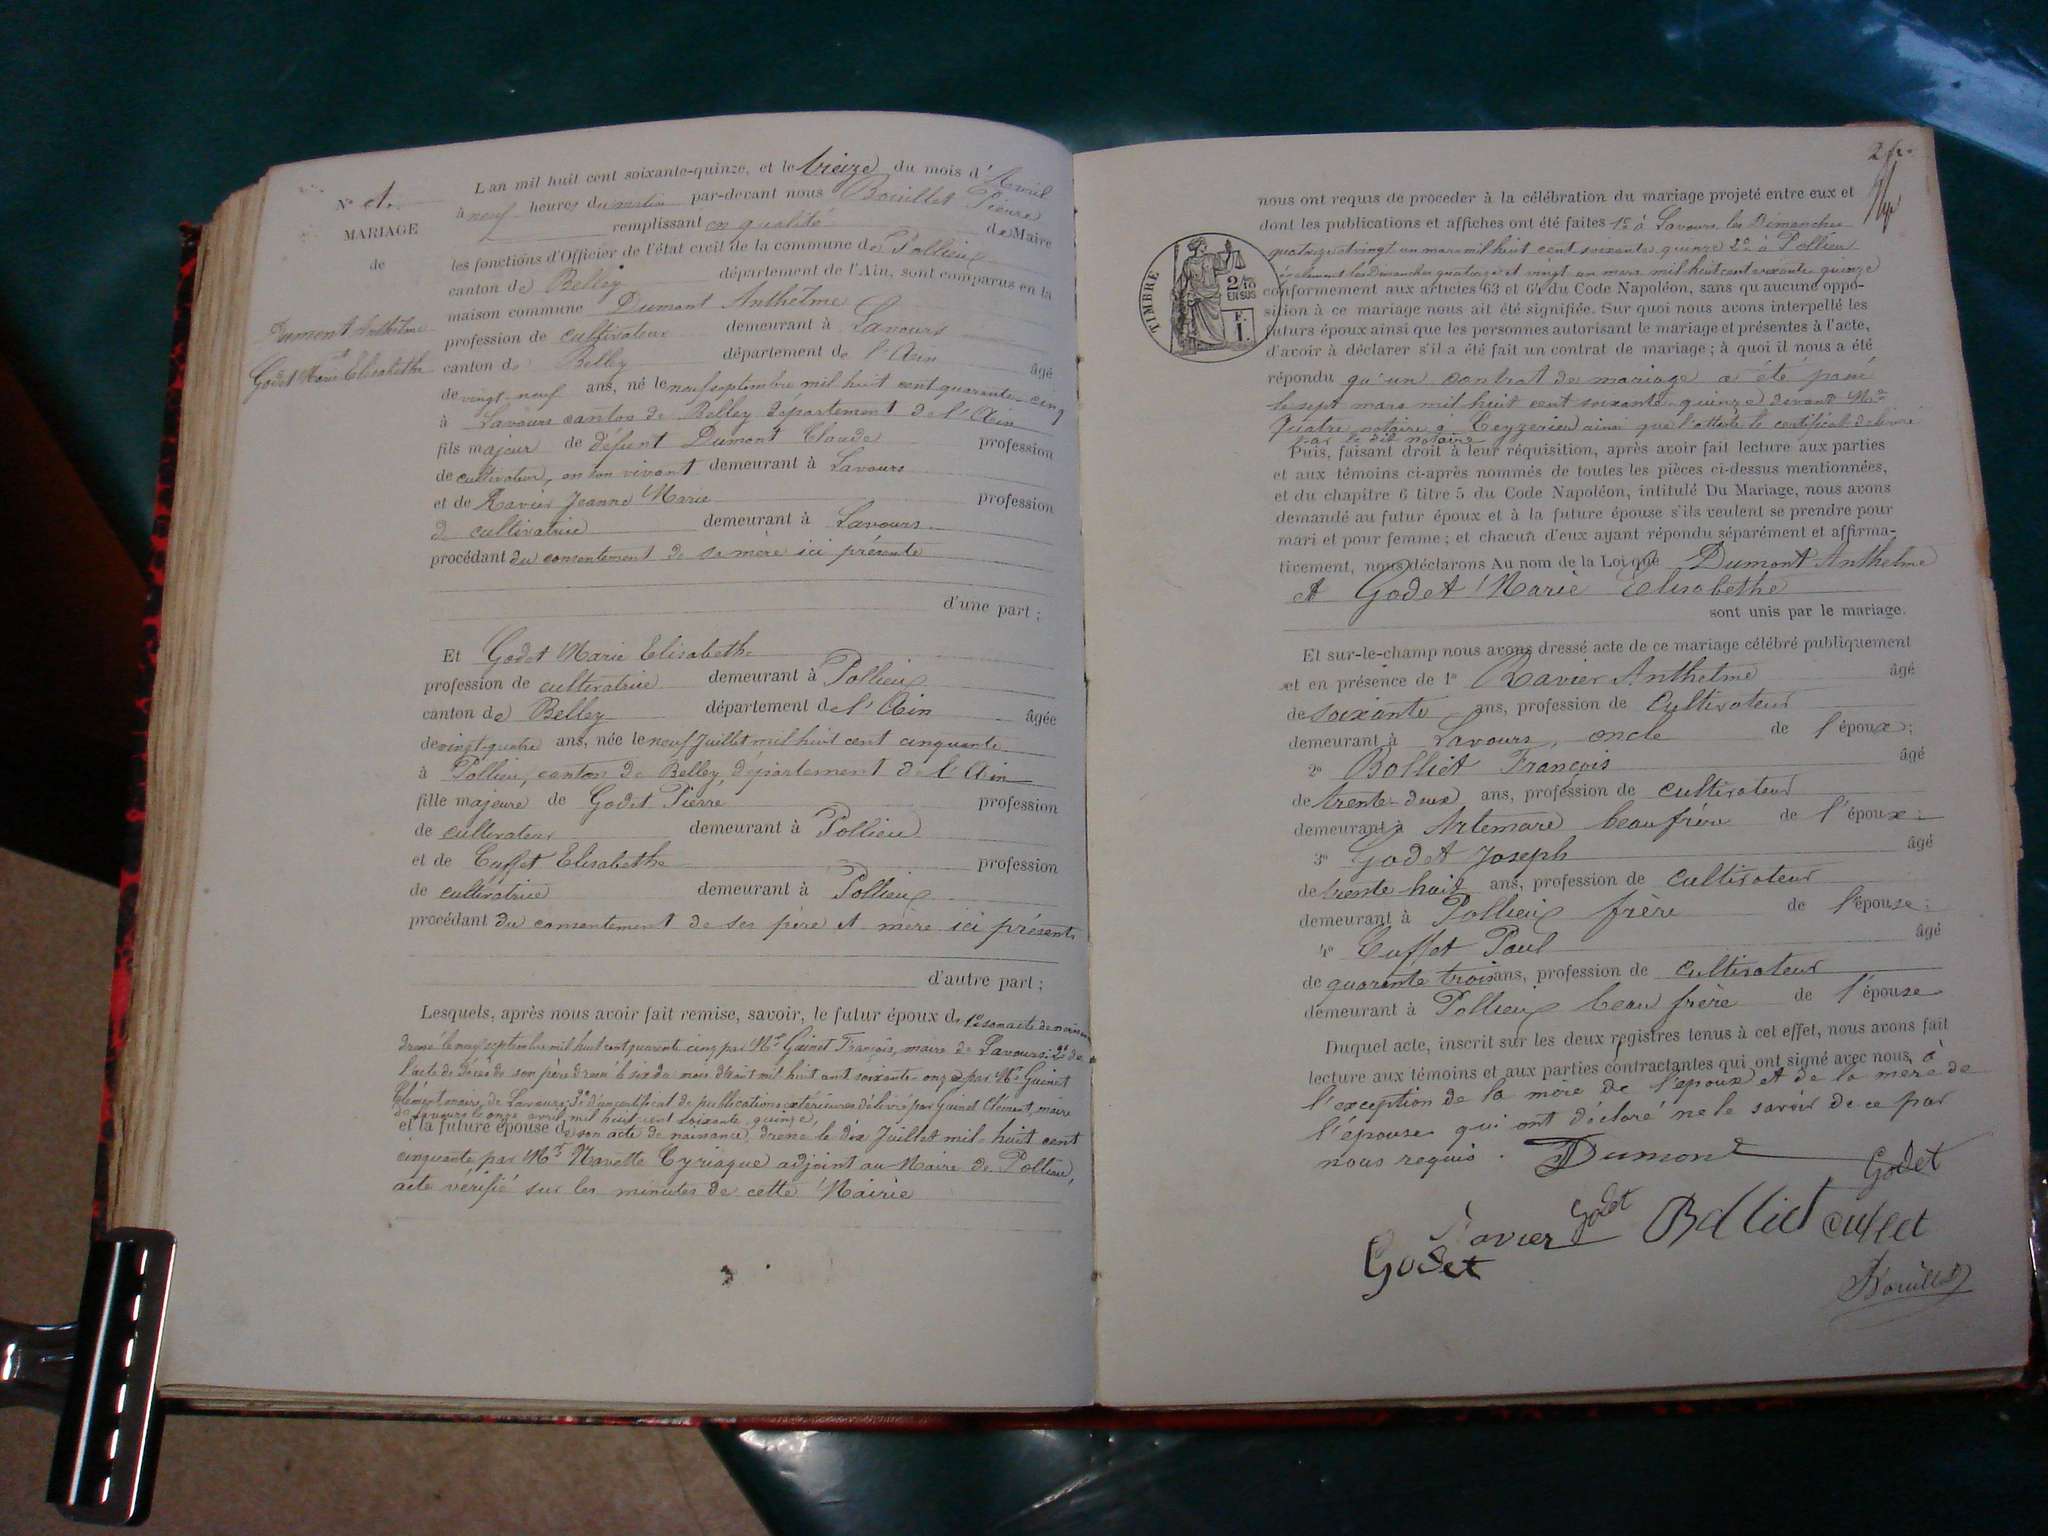 N° 1.
MARIAGE
de
Dumont Anthelme
et
Godet Marie Elisabethe
L'an mil huit cent soixante-quinze, et le treize du mois d'Avril
à neuf heures du matin par-devant nous Bouillet Pierre
remplissant en qualité de Maire
les fonctions d'Officier de l'état civil de la commune de Pollieu
canton de Belley département de l'Ain, sont comparus en la
maison commune Dumont Anthelme
profession de cultivateur demeurant à Lavours
canton de Belley département de l'Ain âgé
de vingt-neuf ans, né le neuf septembre mil huit cent quarante-cinq
à Lavours canton de Belley département de l'Ain
fils majeur de défunt Dumont Claude profession
de cultivateur, en son vivant demeurant à Lavours
et de Ravier Jeanne Marie profession
de cultivatrice demeurant à Lavours
procédant du consentement de sa mère ici présente
d'une part ;
Et Godet Marie Elisabethe
profession de cultivatrice demeurant à Pollieu
canton de Belley département de l'Ain âgée
de vingt-quatre ans, née le neuf Juillet mil huit cent cinquante
à Pollieu, canton de Belley, département de l'Ain
fille majeure de Godet Pierre profession
de cultivateur demeurant à Pollieu
et de Cuffet Elisabethe profession
de cultivatrice demeurant à Pollieu
procédant du consentement de ses père et mère ici présents
d'autre part ;
Lesquels, après nous avoir fait remise, savoir, le futur époux de 1° son acte de naissance
dressé le neuf septembre mil huit cent quarante cinq par Mr Guinet François, maire de Lavours; 2° de
l'acte de décès de son père dressé le six du mois d'Août mil huit cent soixante-onze par Mr Guinet
Clément maire de Lavours; 3° d'un certificat de publications extérieures délivré par Guinet Clément, maire
de Lavours le onze avril mil huit cent soixante quinze,
et la future épouse de son acte de naissance, dressé le dix Juillet mil huit cent
cinquante par Mr Navette Cyriaque adjoint au Maire de Pollieu,
acte vérifié sur les minutes de cette Mairie
2
nous ont requis de proceder à la célébration du mariage projeté entre eux et
dont les publications et affiches ont été faites 1° à Lavours les Dimanches
quatorze et vingt un mars mil huit cent soixante quinze 2° à Pollieu
également les Dimanches quatorze et vingt un mars mil huit cent soixante quinze
TIMBRE
2/10
EN SUS
F.
1.
conformement aux articles 63 et 64 du Code Napoléon, sans qu'aucune oppo-
sition à ce mariage nous ait été signifiée. Sur quoi nous avons interpellé les
futurs époux ainsi que les personnes autorisant le mariage et présentes à l'acte,
d'avoir à déclarer s'il a été fait un contrat de mariage ; à quoi il nous a été
répondu qu'un contrat de mariage a été passé
le sept mars mil huit cent soixante-quinze devant Me
Quatre, notaire à Ceyzerieu ainsi que l'atteste le certificat délivré
par le dit notaire
Puis, faisant droit à leur réquisition, après avoir fait lecture aux parties
et aux témoins ci-après nommés de toutes les pièces ci-dessus mentionnées,
et du chapitre 6 titre 5 du Code Napoléon, intitulé Du Mariage, nous avons
demandé au futur époux et à la future épouse s'ils veulent se prendre pour
mari et pour femme ; et chacun d'eux ayant répondu séparément et affirma-
tivement, nous déclarons Au nom de la Loi que Dumont Anthelme
et Godet Marie Elisabethe
sont unis par le mariage.
Et sur-le-champ nous avons dressé acte de ce mariage célébré publiquement
et en présence de 1° Ravier Anthelme âgé
de soixante ans, profession de Cultivateur
demeurant à Lavours, oncle de l'époux ;
2° Bolliet François âgé
de trente-deux ans, profession de cultivateur
demeurant à Artemare beau frère de l'époux ;
3° Godet Joseph âgé
de trente huit ans, profession de cultivateur
demeurant à Pollieu frère de l'épouse ;
4° Cuffet Paul âgé
de quarante trois ans, profession de cultivateur
demeurant à Pollieu beau frère de l'épouse
Duquel acte, inscrit sur les deux registres tenus à cet effet, nous avons fait
lecture aux témoins et aux parties contractantes qui ont signé avec nous, à
l'exception de la mère de l'époux et de la mère de
l'épouse qui ont déclaré ne le savoir de ce par
nous requis.
Dumont
Godet
Ravier
Godet
Bolliet
Cuffet
Godet
Bouillet